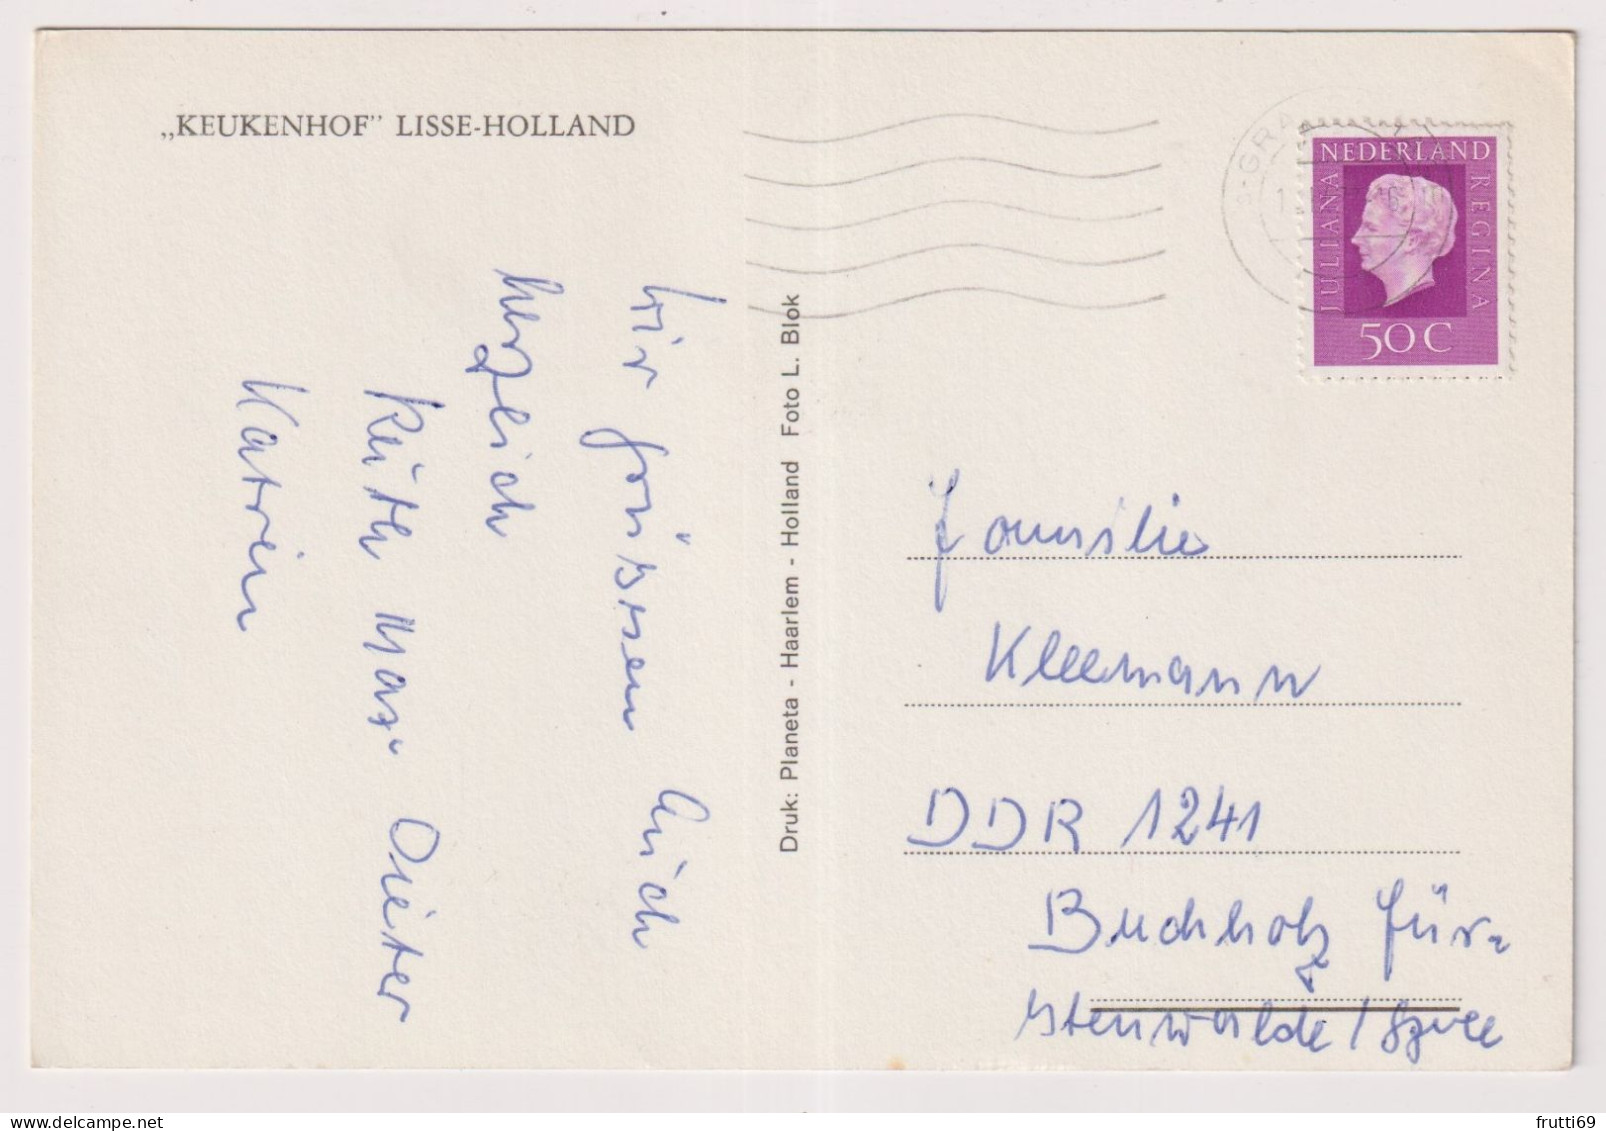 „KEUKENHOF” LISSE-HOLLAND
wir grüssen Euch
herzlich
Ruth Max Dieter
Katrin
Druk: Planeta - Haarlem - Holland Foto L. Blok
NEDERLAND
JULIANA
REGINA
50 C
Familie
Kleemann
DDR 1241
Buchholz für-
stenwalde / Spree
frutti69